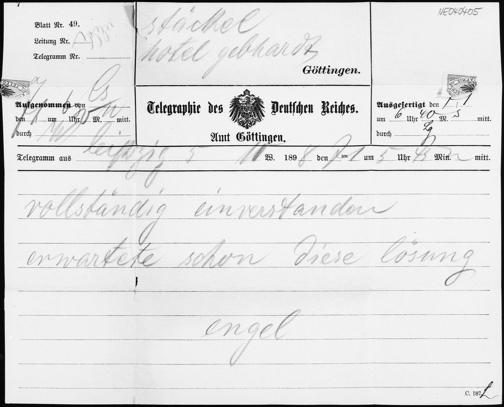 Blatt Nr. 49.
Leitung Nr.
Telegramm Nr.
stäckel
hotel gebhardt
Göttingen.
NE040405
Aufgenommen von
den um Uhr M. mitt.
durch
Telegraphie des Deutschen Reiches.
Amt Göttingen.
Ausgefertigt den 7/1
um 6 Uhr 40 M. mitt.
durch
Telegramm aus leipzig 5 W. 1898 den 7/1 um 5 Uhr Min. mitt.
vollständig einverstanden
erwartete schon diese lösung
engel
C. 187